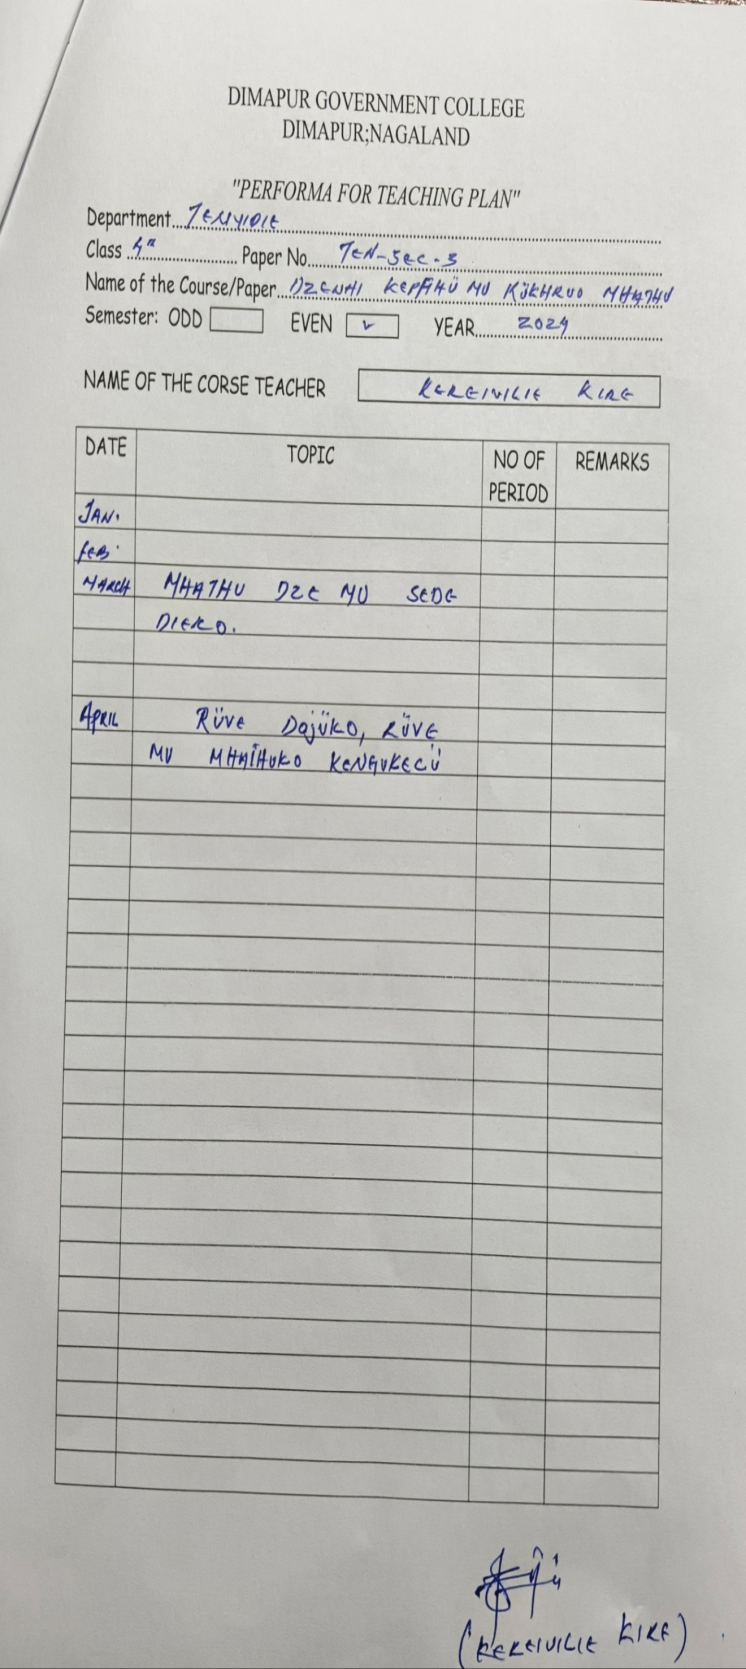 DIMAPUR GOVERNMENT COLLEGE
DIMAPUR;NAGALAND
"PERFORMA FOR TEACHING PLAN"
Department...TENYIDIE
Class 4th Paper No. TEN-SEC-3
Name of the Course/Paper...DZENHI KEPFHÜ MU KÜKHRUO MHATHU
Semester: ODD EVEN ✓ YEAR 2024
NAME OF THE CORSE TEACHER KEREIVILIE KIRE
DATE TOPIC NO OF PERIOD REMARKS
JAN.
FEB.
MARCH MHATHU DZE MU SEDE
DIEKO.
APRIL RÜVE DOJÜKO, RÜVE
MU MHAIHUKO KENGUKECÜ
(KEREIVILIE KIRE)